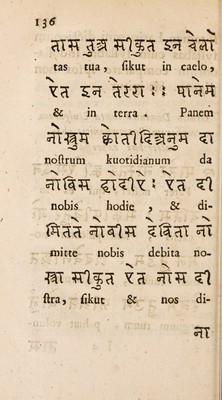 136
तास तुअ सीकुत इन चेलो
tas tua, sikut in caelo,
एत इन तेररा ः पानेम
& in terra. Panem
नोस्त्रुम क्वोतीदिअनुम दा
nostrum kuotidianum da
नोबिस होदीएः एत दी
nobis hodie, & di-
मितते नोबीस देबिता नो
mitte nobis debita no-
स्त्रा सीकुत एत नोस दी
stra, sikut & nos di-
ना